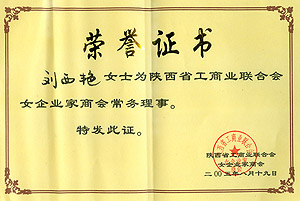 荣誉证书
刘西艳女士为陕西省工商业联合会
女企业家商会常务理事。
特发此证。
陕西省工商业联合会
女企业家商会
二00三年八月十九日